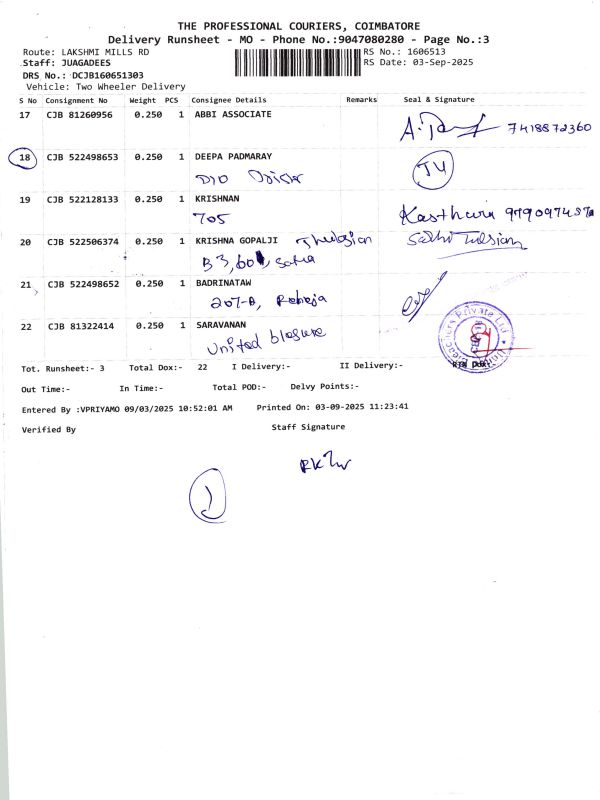 THE PROFESSIONAL COURIERS, COIMBATORE
Delivery Runsheet - MO - Phone No.:9047080280 - Page No.:3
Route: LAKSHMI MILLS RD RS No.: 1606513
Staff: JUAGADEES RS Date: 03-Sep-2025
DRS No.: DCJB160651303
Vehicle: Two Wheeler Delivery
S No Consignment No Weight PCS Consignee Details Remarks Seal & Signature
17 CJB 81260956 0.250 1 ABBI ASSOCIATE
7418872360
18 CJB 522498653 0.250 1 DEEPA PADMARAY
19 CJB 522128133 0.250 1 KRISHNAN
705
20 CJB 522506374 0.250 1 KRISHNA GOPALJI
21 CJB 522498652 0.250 1 BADRINATAW
207-A, Raheja
22 CJB 81322414 0.250 1 SARAVANAN
United
Tot. Runsheet:- 3 Total Dox:- 22 I Delivery:- II Delivery:-
Out Time:- In Time:- Total POD:- Delvy Points:-
Entered By :VPRIYAMO 09/03/2025 10:52:01 AM Printed On: 03-09-2025 11:23:41
Verified By Staff Signature
1